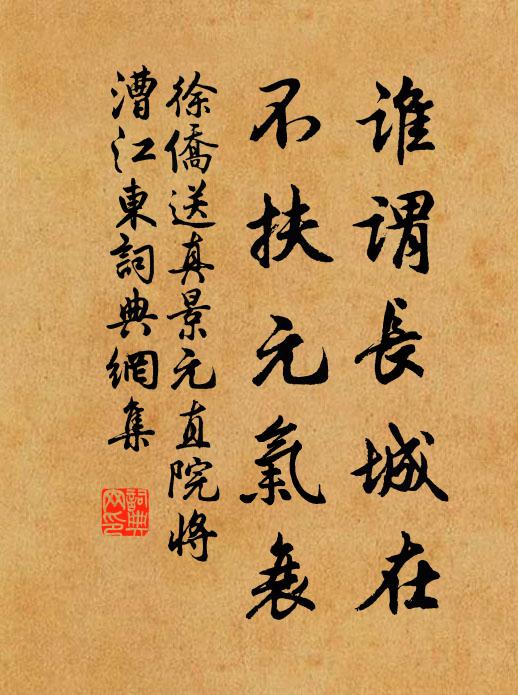 誰謂長城在
不扶元氣衰
徐僑送真景元直院將
漕江東詞典網集
詞典
网印